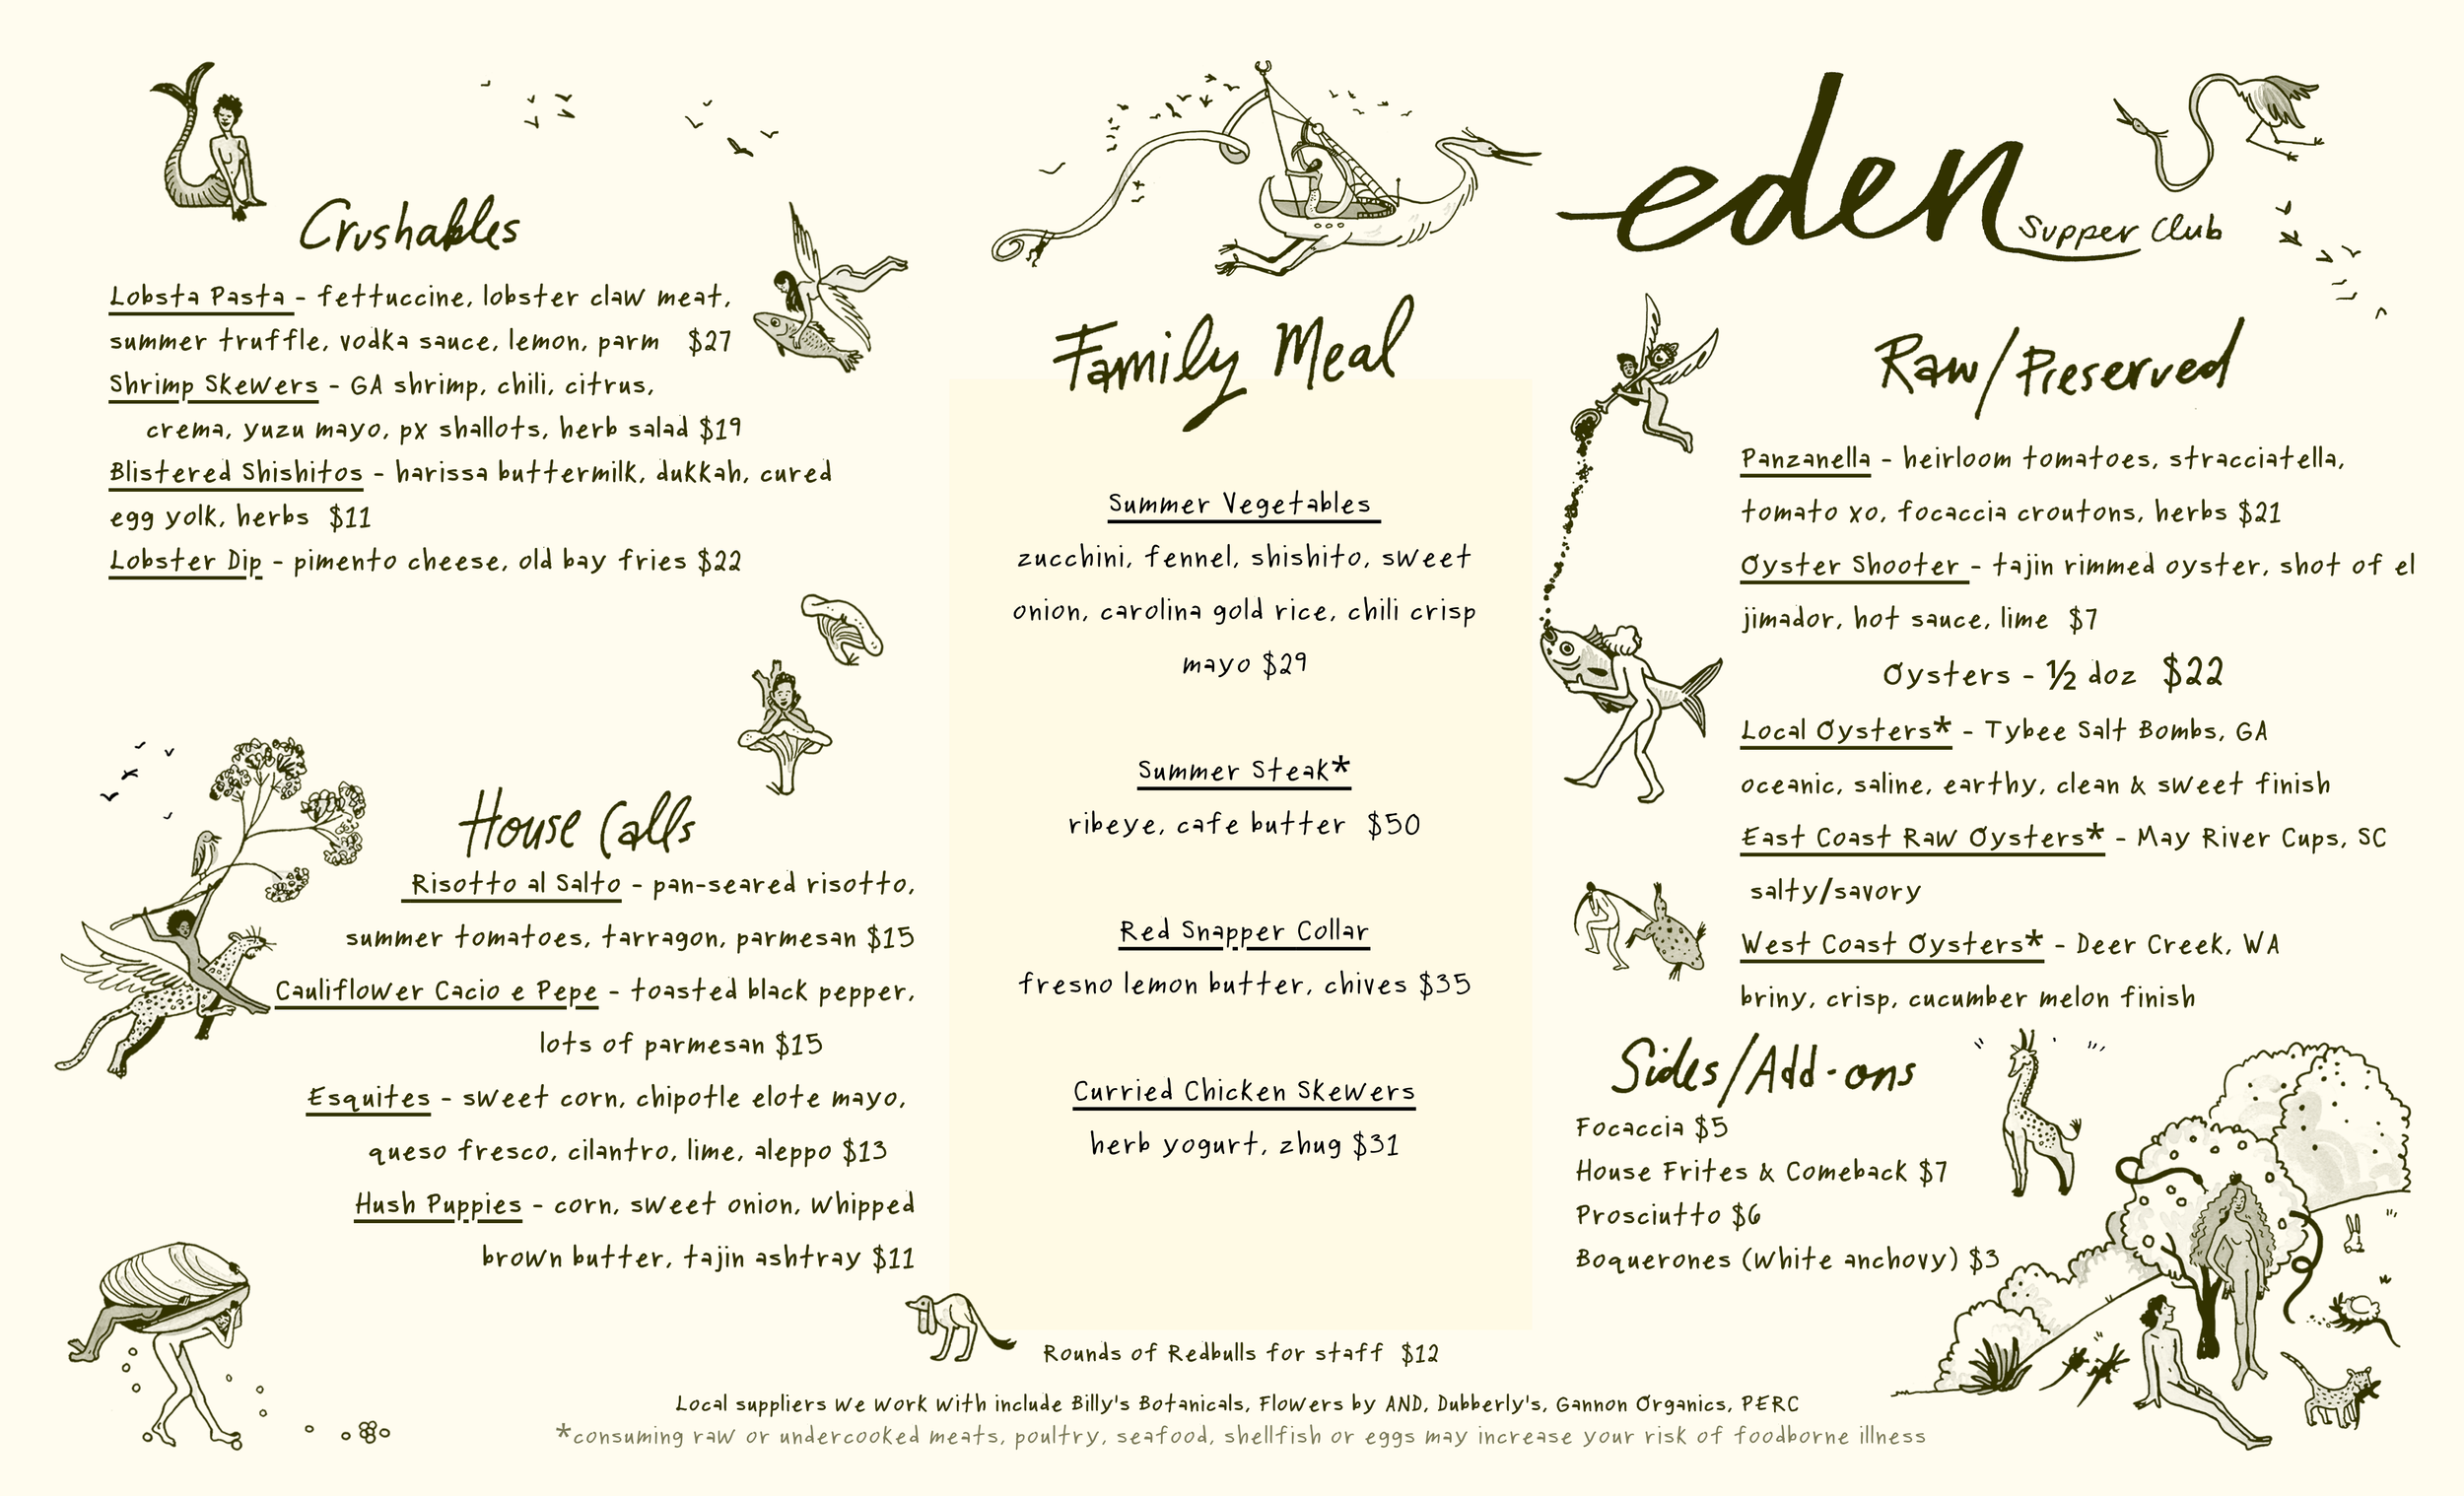 Crushables
Lobsta Pasta - fettuccine, lobster claw meat,
summer truffle, vodka sauce, lemon, parm $27
Shrimp Skewers - GA shrimp, chili, citrus,
crema, yuzu mayo, px shallots, herb salad $19
Blistered Shishitos - harissa buttermilk, dukkah, cured
egg yolk, herbs $11
Lobster Dip - pimento cheese, old bay fries $22
House Calls
Risotto al Salto - pan-seared risotto,
summer tomatoes, tarragon, parmesan $15
Cauliflower Cacio e Pepe - toasted black pepper,
lots of parmesan $15
Esquites - sweet corn, chipotle elote mayo,
queso fresco, cilantro, lime, aleppo $13
Hush Puppies - corn, sweet onion, whipped
brown butter, tajin ashtray $11
Family Meal
Summer Vegetables
zucchini, fennel, shishito, sweet
onion, carolina gold rice, chili crisp
mayo $29
Summer Steak*
ribeye, cafe butter $50
Red Snapper Collar
fresno lemon butter, chives $35
Curried Chicken Skewers
herb yogurt, zhug $31
eden
Supper Club
Raw/Preserved
Panzanella - heirloom tomatoes, stracciatella,
tomato xo, focaccia croutons, herbs $21
Oyster Shooter - tajin rimmed oyster, shot of el
jimador, hot sauce, lime $7
Oysters - ½ doz $22
Local Oysters* - Tybee Salt Bombs, GA
oceanic, saline, earthy, clean & sweet finish
East Coast Raw Oysters* - May River Cups, SC
salty/savory
West Coast Oysters* - Deer Creek, WA
briny, crisp, cucumber melon finish
Sides/Add-ons
Focaccia $5
House Frites & Comeback $7
Prosciutto $6
Boquerones (white anchovy) $3
Rounds of Redbulls for staff $12
Local suppliers we work with include Billy's Botanicals, Flowers by AND, Dubberly's, Gannon Organics, PERC
*consuming raw or undercooked meats, poultry, seafood, shellfish or eggs may increase your risk of foodborne illness